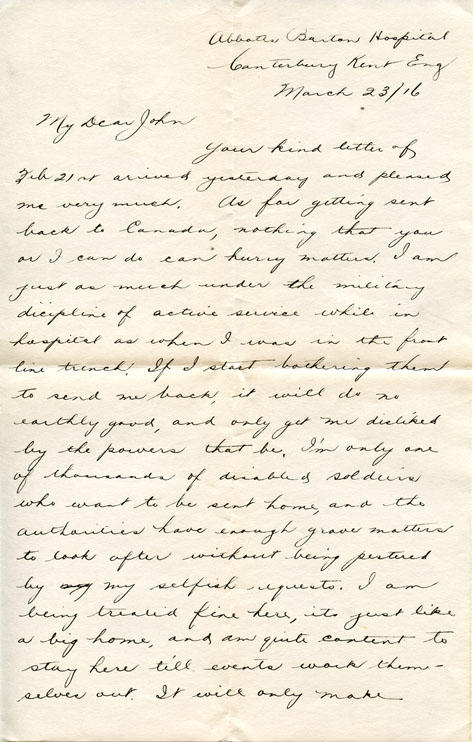 Abbots Barton Hospital
Canterbury Kent Eng
March 23/16
My Dear John
Your kind letter of
Feb 21st arrived yesterday and pleased
me very much. As for getting sent
back to Canada, nothing that you
or I can do can hurry matters. I am
just as much under the military
dicipline of active service while in
hospital as when I was in the front
line trench. If I start bothering them
to send me back, it will do no
earthly good, and only get me disliked
by the powers that be. I'm only one
of thousands of disabled soldiers
who want to be sent home, and the
authorities have enough grave matters
to look after without being pestered
by my selfish requests. I am
being treated fine here, its just like
a big home, and am quite content to
stay here till events work them-
selves out. It will only make